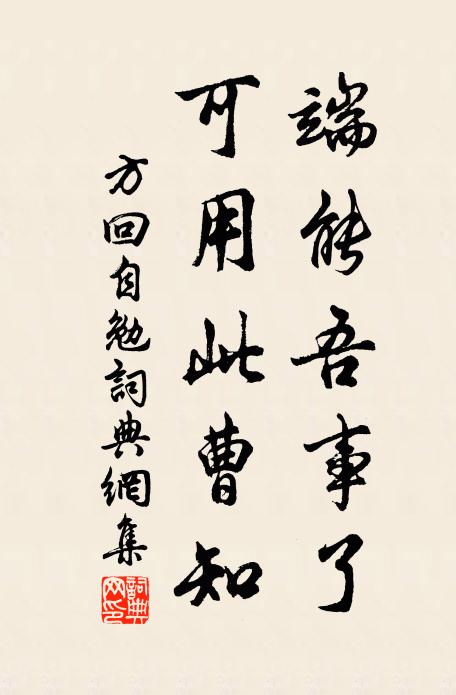 端能吾事了
可用此曹知
方回自勉詞典網集
詞典網印